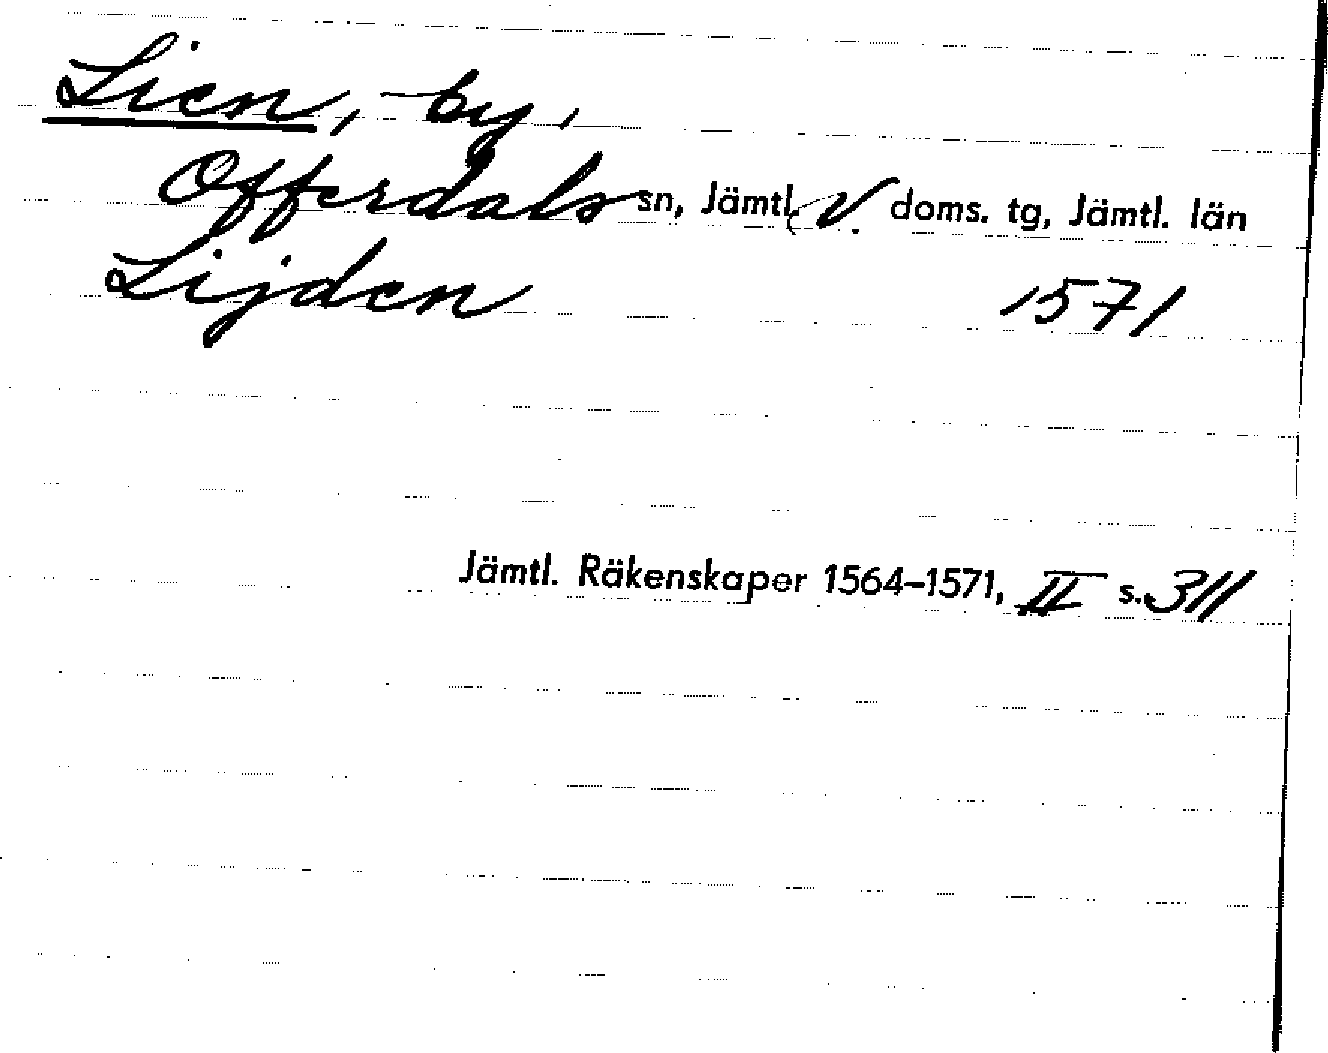 Lien, by,
Offerdals sn, Jämtl. V. doms. tg, Jämtl. län
Lijden 1571
Jämtl. Räkenskaper 1564–1571, II s. 311